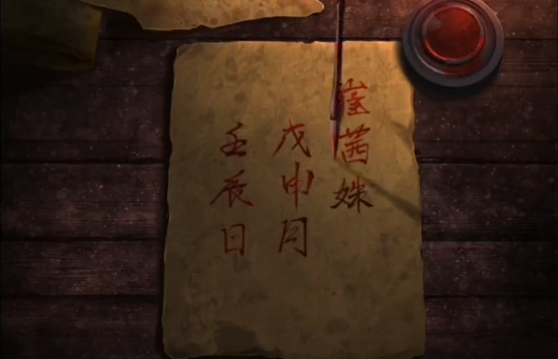 茜姝
戊申月
壬辰日